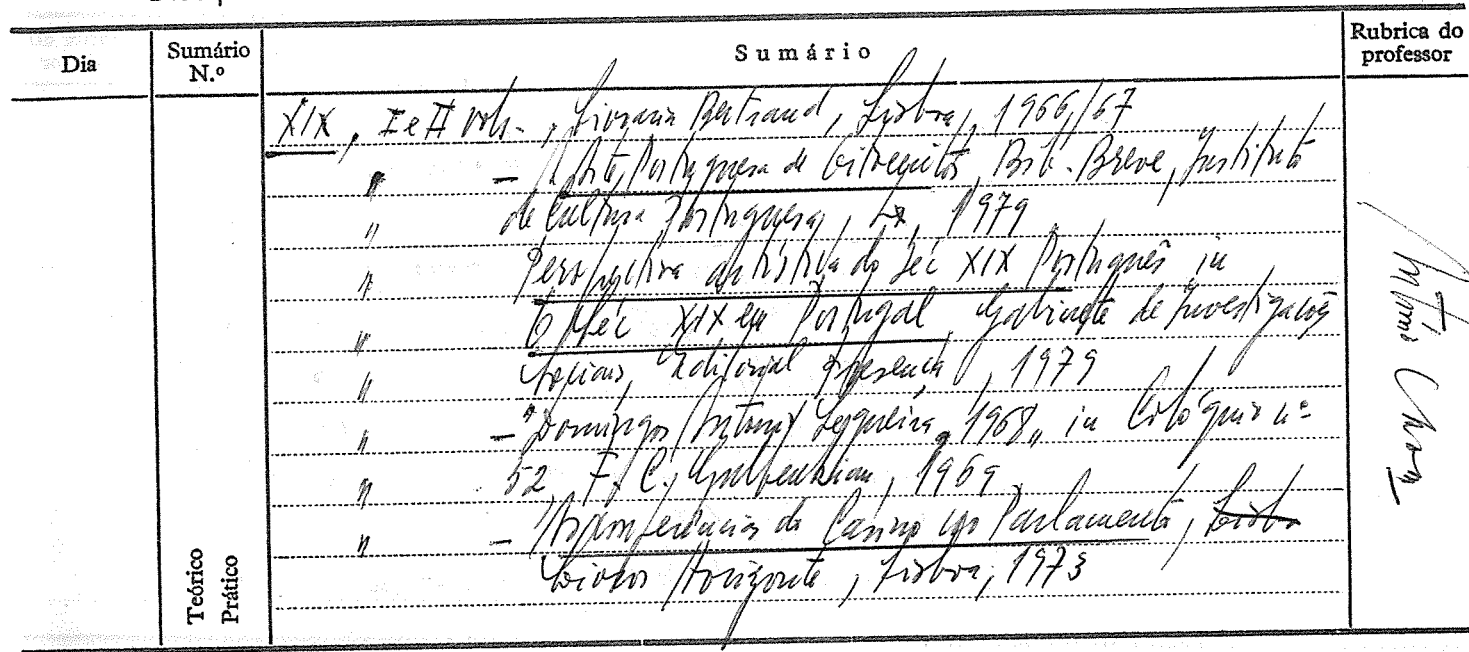 Dia
Sumário N.º
Sumário
Rubrica do professor
XIX, I e II vols., Livraria Bertrand, Lisboa, 1966/67
" - A Arte Portuguesa de Oitocentos, Bib. Breve, Instituto
" de Cultura Portuguesa, Lx, 1979
" Perspectiva artística do Séc XIX Português in
" O Séc XIX em Portugal Gabinete de Investigações
" Sociais, Editorial Presença, 1979
" - "Domingos António Sequeira, 1968" in Colóquio nº
" 52, F. C. Gulbenkian, 1969
" - As Conferências do Casino no Parlamento, Lisbo
Livros Horizonte, Lisboa, 1973
Teórico
Prático
António